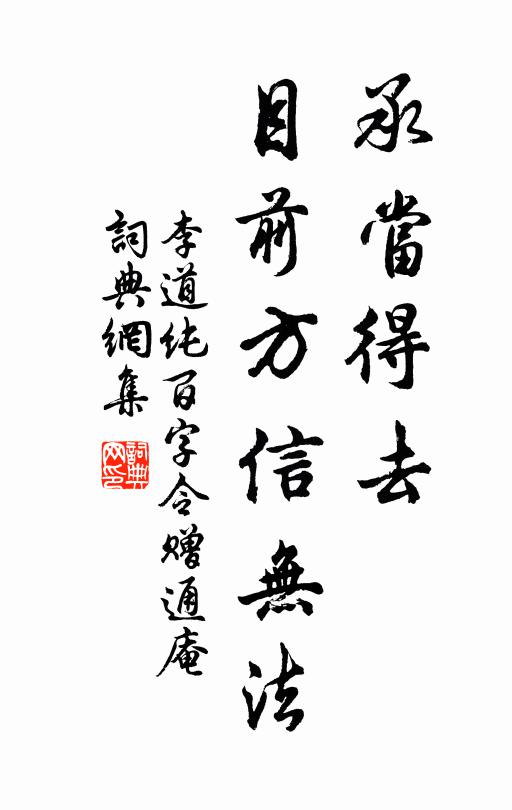 承當得去
目前方信無法
李道純百字令贈通庵
詞典網集
詞典網印